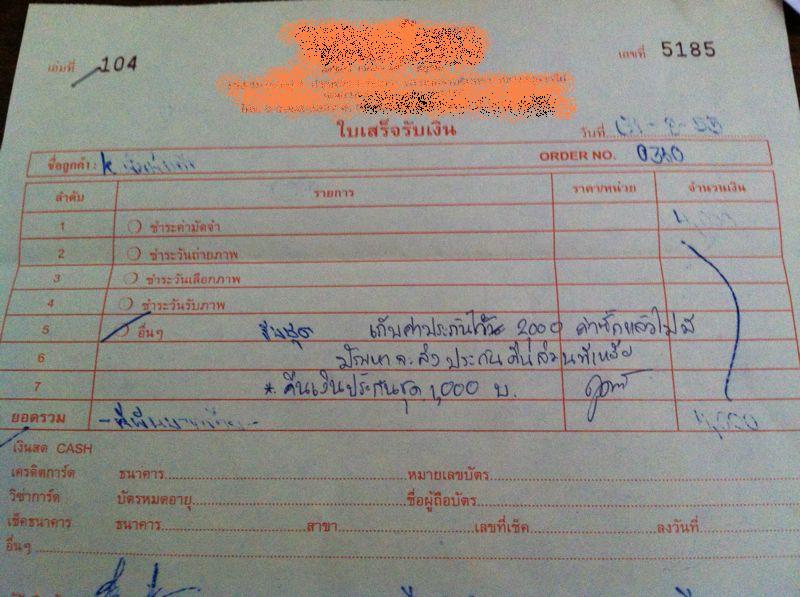 เล่มที่ 104
เลขที่ 5185
ใบเสร็จรับเงิน
วันที่
ชื่อลูกค้า : K
ORDER NO. 0340
ลำดับ รายการ ราคา/หน่วย จำนวนเงิน
1 ชำระค่ามัดจำ
2 ชำระวันถ่ายภาพ
3 ชำระวันเลือกภาพ
4 ชำระวันรับภาพ
5 อื่นๆ เก็บค่าประกันไว้ 2000 แล้วไม่มี
6 ปัญหาจะส่งประกันคืนส่วนที่เหลือ
7 * คืนเงินประกันชุด 1,000 บ.
ยอดรวม 4,000
เงินสด CASH
เครดิตการ์ด ธนาคาร หมายเลขบัตร
วีซ่าการ์ด บัตรหมดอายุ ชื่อผู้ถือบัตร
เช็คธนาคาร ธนาคาร สาขา เลขที่เช็ค ลงวันที่
อื่นๆ